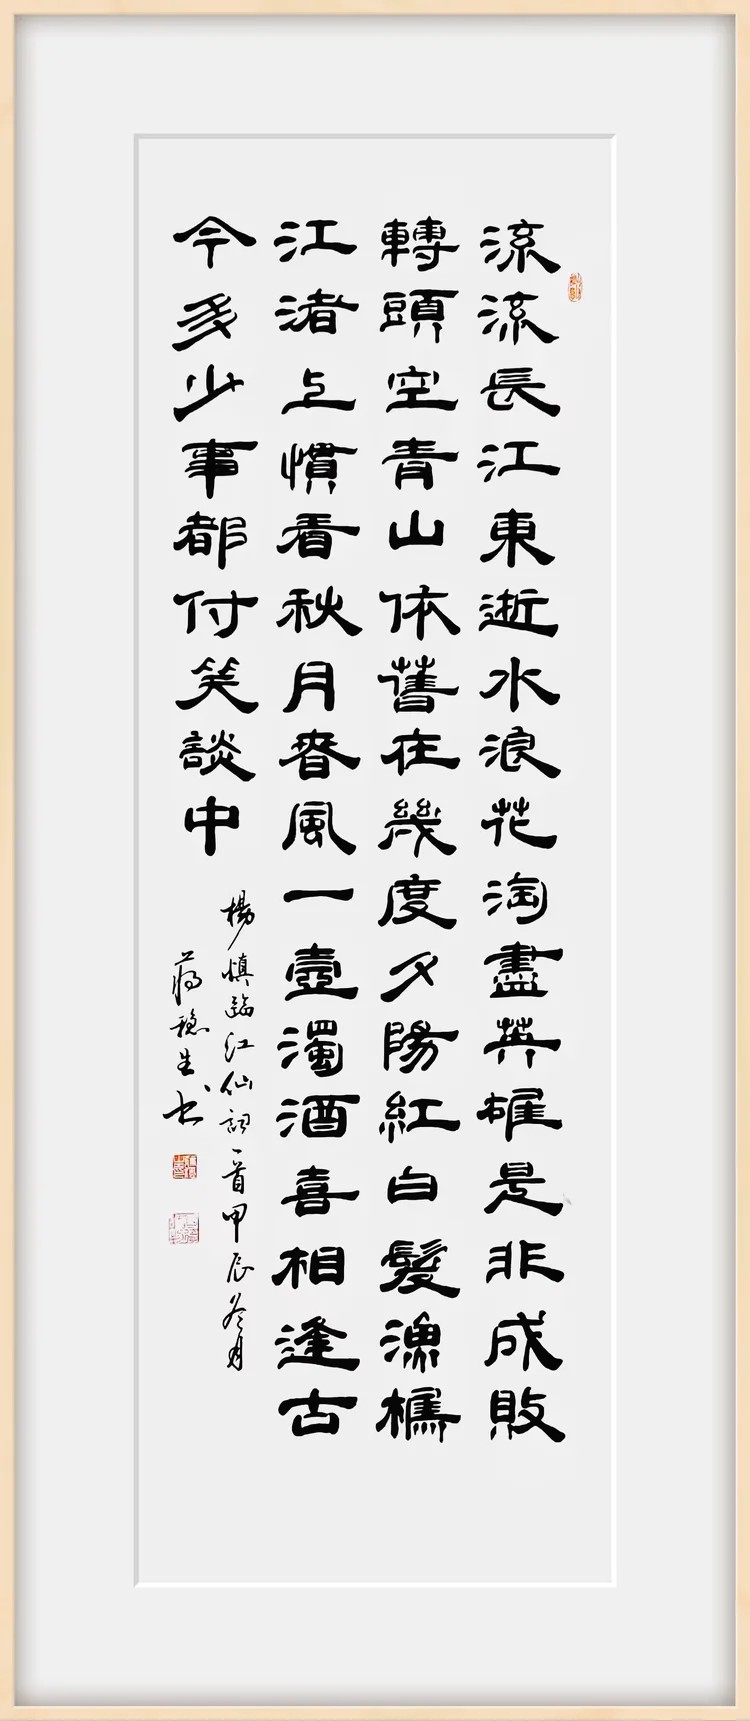 流流長江東逝水浪花淘盡英雄是非成敗
轉頭空青山依舊在幾度夕陽紅白髮漁樵
江渚上慣看秋月春風一壺濁酒喜相逢古
今多少事都付笑談中
楊慎臨江仙詞一首甲辰冬月
蒋稳生书